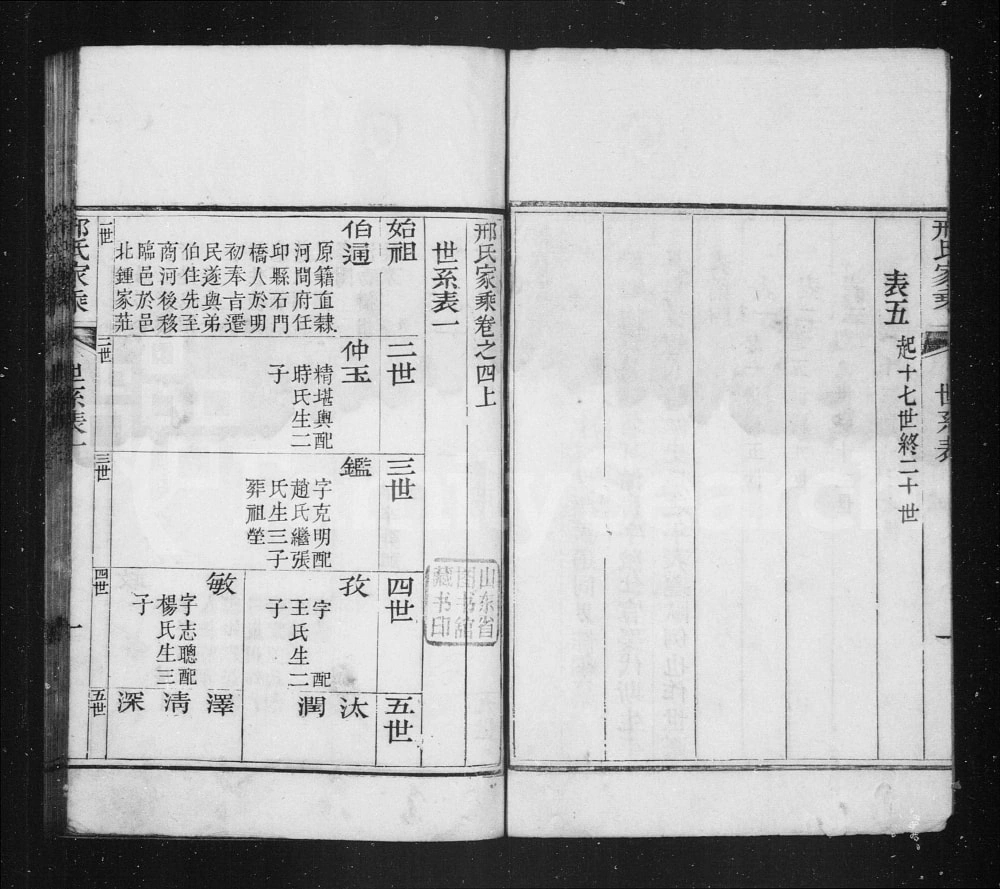 邢氏家乘
世系表
一
表五
起十七世終二十世
邢氏家乘卷之四上
世系表一
山东省
图书館
藏书印
始祖
伯通
原籍直隸
河間府任
邱縣石門
橋人於明
初奉旨遷
民遂與弟
伯住先至
商河後移
臨邑於邑
北鍾家莊
二世
仲玉
精堪輿配
時氏生二
子
三世
鑑
字克明配
趙氏繼張
氏生三子
葬祖塋
四世
孜
字 配
王氏生二
子
敏
字志聰配
楊氏生三
子
五世
汰
潤
澤
淸
深
一世
二世
三世
四世
五世
邢氏家乘
世系表一
一